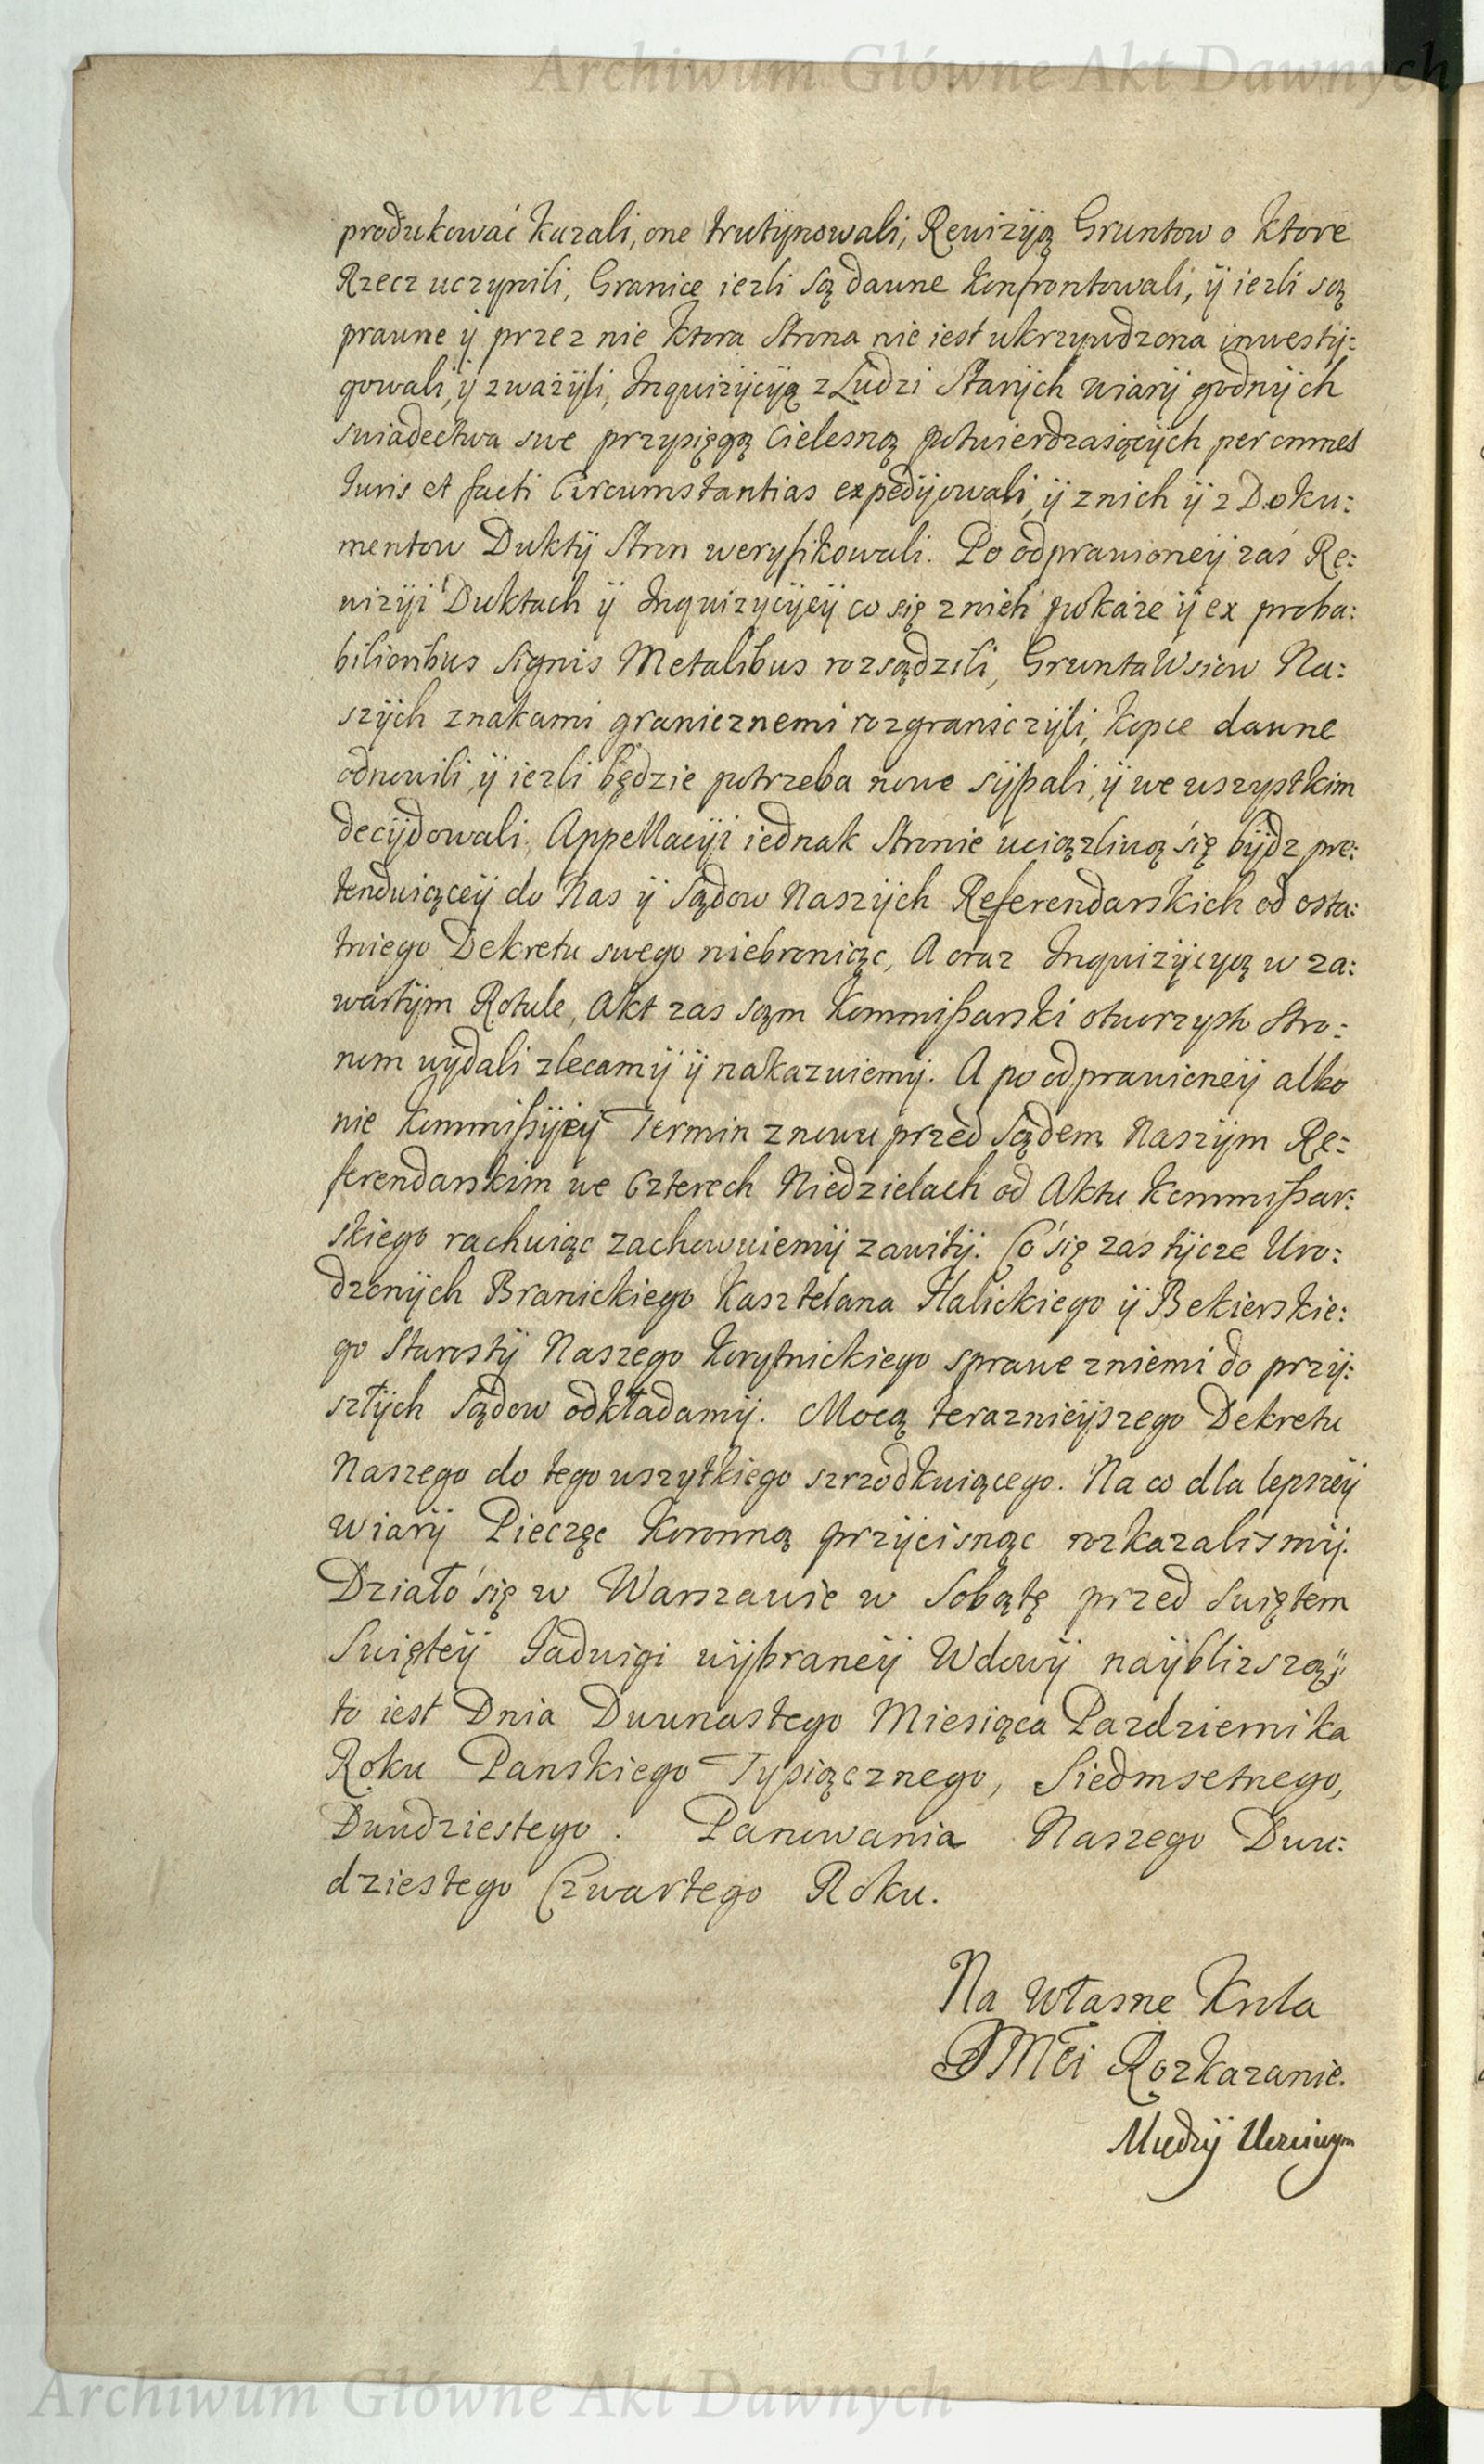 Archiwum Główne Akt Dawnych
produkować kazali, one trutynowali, Rewizyą Gruntow o ktore
Rzecz uczynili, Granice iezli są dawne konfrontowali, ÿ iezli są
prawne ÿ przez nie ktora Strona nie iest ukrzywdzona inwestÿ:
gowali, ÿ zważÿli, Inquizÿcyą z Ludzi Starÿch wiarÿ godnÿch
swiadectwa swe przysięgą Cielesną potwierdzaiącÿch per omnes
Juris et facti Circumstantias expedÿowali, ÿ z nich ÿ z Doku:
mentow Duktÿ Stron weryfikowali. Po odprawioneÿ zaś Re:
wizÿi Duktach ÿ Inquizycÿeÿ co się z nich pokaże ÿ ex proba:
bilioribus Signis Metalibus rozsądzili, Grunta Wsiow Na:
szÿch znakami granicznemi rozgranicżÿli, kopce dawne
odnowili, ÿ iezli będzie potrzeba nowe sÿpali, ÿ we wszystkim
decÿdowali. Appellacÿi iednak Stronie uciązliwą się bÿdz pre:
tenduiąceÿ do Nas ÿ Sądow Naszÿch Referendarskich od osta:
tniego Dekretu swego niebroniąc, A oraz Inquizÿcyą w za:
wartÿm Rotule, Akt zas sąm Kommissarski otworzysto Stro:
nom wÿdali zlecamÿ ÿ nakazuiemÿ. A po odprawioneÿ albo
nie Kommissÿieÿ Termin znowu przed Sądem Naszÿm Re:
ferendarskim we Czterech Niedzielach od Aktu Kommissar:
skiego rachuiąc zachowuiemÿ zawitÿ. Co się zas tÿcze Uro:
dzonÿch Branickiego Kasztelana Halickiego ÿ Bekierskie:
go Starostÿ Naszego Korytnickiego sprawe zniemi do przÿ:
szłÿch Sądow odkładamÿ. Mocą teraznieÿszego Dekretu
Naszego do tego wszytkiego szrzodkuiącego. Na co dla lepszeÿ
wiarÿ Pieczęc Koronną przÿcisnąc rozkazalismÿ.
Działo się w Warszawie w Sobotę przed Swiętem
Swięteÿ Jadwigi wÿbraneÿ Wdowÿ naÿblizszą
to iest Dnia Dwunastego Miesiąca Pazdziernika
Roku Panskiego Tysiącznego, Siedmsetnego,
Dwudziestego. Panowania Naszego Dwu:
dziestego Czwartego Roku.
Na Własne Krola
JMCi Rozkazanie.
Archiwum Główne Akt Dawnych